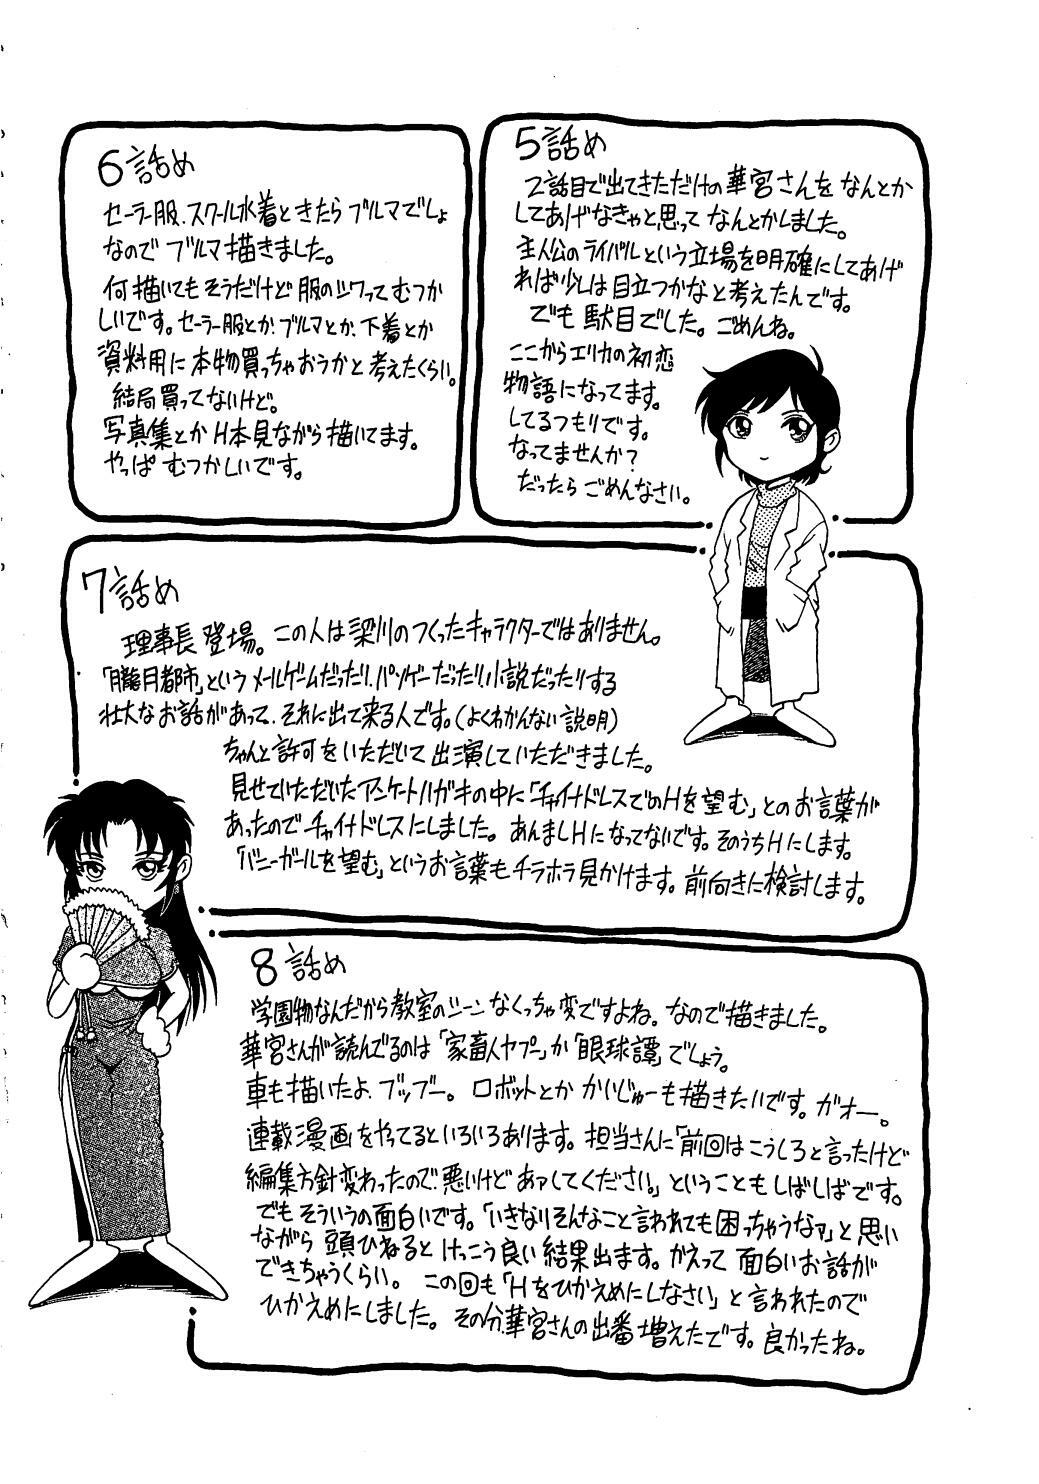 5話め
2話目で出てきただけの華宮さんをなんとか
してあげなきゃと思ってなんとかしました。
主人公のライバルという立場を明確にしてあげ
れば少しは目立つかなと考えたんです。
でも駄目でした。ごめんね。
ここからエリカの初恋
物語になってます。
してるつもりです。
なってませんか?
だったらごめんなさい。
6話め
セーラー服、スクール水着ときたらブルマでしょ
なのでブルマ描きました。
何描いてもそうだけど服のシワってむつか
しいです。セーラー服とか、ブルマとか、下着とか
資料用に本物買っちゃおうかと考えたくらい。
結局買ってないけど。
写真集とかH本見ながら描いてます。
やっぱむつかしいです。
7話め
理事長登場。この人は梁川のつくったキャラクターではありません。
「朧月都市」というメールゲームだったり、パソゲーだったり、小説だったりする
壮大なお話があって、それに出て来る人です。(よくわかんない説明)
ちゃんと許可をいただいて出演していただきました。
見せていただいたアンケートハガキの中に「チャイナドレスでのHを望む」とのお言葉が
あったのでチャイナドレスにしました。あんましHになってないです。そのうちHにします。
「バニーガールを望む」というお言葉もチラホラ見かけます。前向きに検討します。
8話め
学園物なんだから教室のシーンなくっちゃ変ですよね。なので描きました。
華宮さんが読んでるのは「家畜人ヤプー」か「眼球譚」でしょう。
車も描いたよ、ブッブー。ロボットとかかいじゅーも描きたいです。ガオー。
連載漫画をやってるといろいろあります。担当さんに「前回はこうしろと言ったけど
編集方針変わったので、悪いけどあァしてください。」ということもしばしばです。
でもそういうの面白いです。「いきなりそんなこと言われても困っちゃうなァ」と思い
ながら頭ひねるとけっこう良い結果出ます。かえって面白いお話が
できちゃうくらい。この回も「Hをひかえめにしなさい」と言われたので
ひかえめにしました。その分、華宮さんの出番増えたです。良かったね。